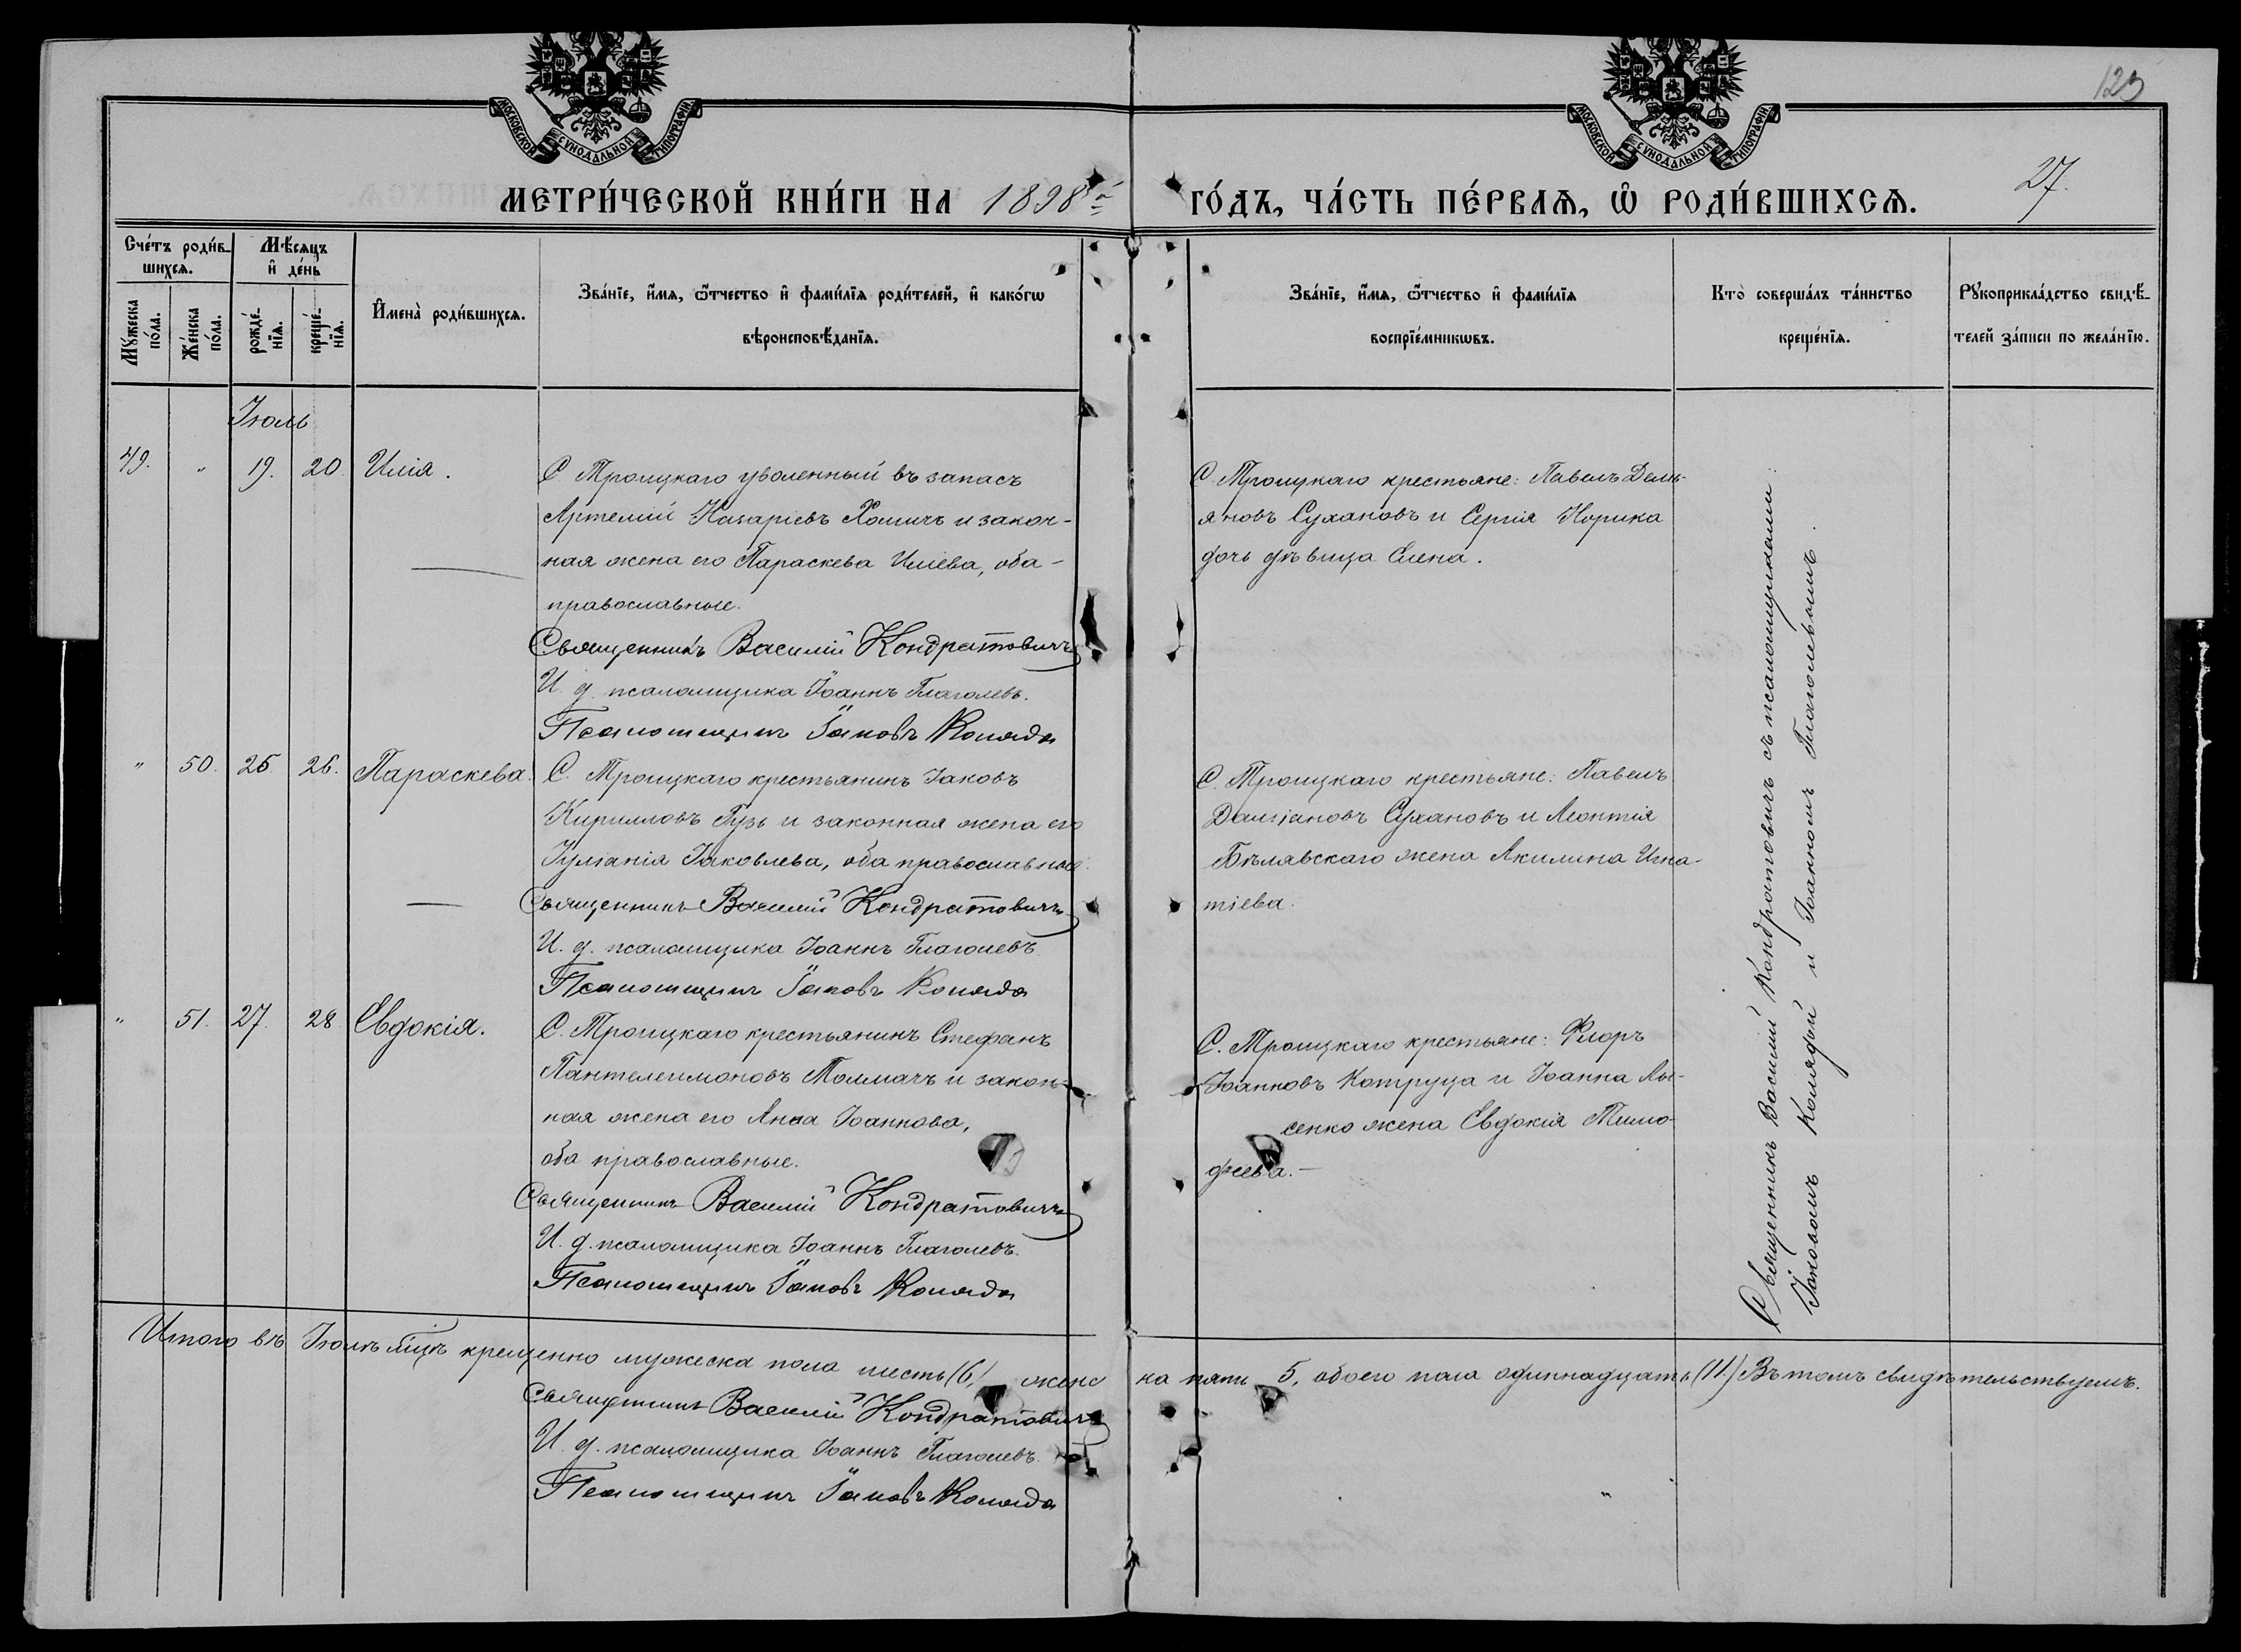 123
МОСКОВСКОЙ СѴНОДАЛЬНОЙ ТИПОГРАФІИ
МОСКОВСКОЙ СѴНОДАЛЬНОЙ ТИПОГРАФІИ
27.
МЕТРИ́ЧЕСКОЙ КНИ́ГИ НА 1898й ГО́ДЪ, ЧА́СТЬ ПЕ́РВАѦ, Ѡ҆ РОДИ́ВШИХСѦ.
Сче́тъ роди́в-
шихсѧ.
Мѣ́сѧцъ
и҆ де́нь
Мꙋ́жеска
по́ла.
Же́нска
по́ла.
рожде́-
нїѧ.
креще́-
нїѧ.
И҆мена̀ роди́вшихсѧ.
Зва́нїе, и҆́мѧ, ѻ҆́тчество и҆ фами́лїѧ роди́телей, и҆ како́гѡ
вѣроисповѣ́данїѧ.
Зва́нїе, и҆́мѧ, ѻ҆́тчество и҆ фами́лїѧ
воспрїе́мникѡвъ.
Кто̀ соверша́лъ та́инство
креще́нїѧ.
Рꙋкоприкла́дство свидѣ́-
телей за́писи по жела́нїю.
Іюль
49. " 19. 20. Илія.
С. Троицкаго уволенный въ запасъ
Артемій Назаріевъ Хомичъ и закон-
ная жена его Параскева Иліева, оба
православные.
Священникъ Василій Кондратовичъ
И. д. псаломщика Іоаннъ Глаголевъ.
Псаломщикъ Іаковъ Коляда
С. Троицкаго крестьяне: Павелъ Деми-
яновъ Сухановъ и Сергія Норика
дочь дѣвица Елена.
" 50. 25. 26. Параскева.
С. Троицкаго крестьянинъ Іаковъ
Кирилловъ Гузь и законная жена его
Іуліанія Іаковлева, оба православные.
Священникъ Василій Кондратовичъ
И. д. псаломщика Іоаннъ Глаголевъ.
Псаломщикъ Іаковъ Коляда
С. Троицкаго крестьяне: Павелъ
Даміановъ Сухановъ и Леонтія
Бѣлявскаго жена Акилина Игна-
тіева.
" 51. 27. 28. Евдокія.
С. Троицкаго крестьянинъ Стефанъ
Пантелеимоновъ Толмачъ и закон-
ная жена его Анна Іоаннова,
оба православные.
Священникъ Василій Кондратовичъ
И. д. псаломщика Іоаннъ Глаголевъ.
Псаломщикъ Іаковъ Коляда
С. Троицкаго крестьяне: Флоръ
Іоанновъ Катруца и Іоанна Лы-
сенко жена Евдокія Тимо-
феева.
Священникъ Василій Кондратовичъ съ псаломщиками
Іаковомъ Колядой и Іоанномъ Глаголевымъ.
Итого въ Іюлѣ м-цѣ крещенно мужеска пола шесть (6) женска пять 5, обоего пола одиннадцать (11.) Въ томъ свидѣтельствуемъ.
Священникъ Василій Кондратовичъ
И. д. псаломщика Іоаннъ Глаголевъ.
Псаломщикъ Іаковъ Коляда